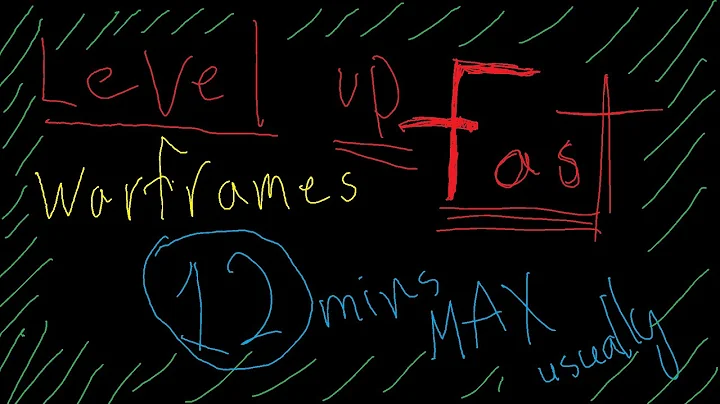 Level up Fast
warframes
12 mins MAX usually